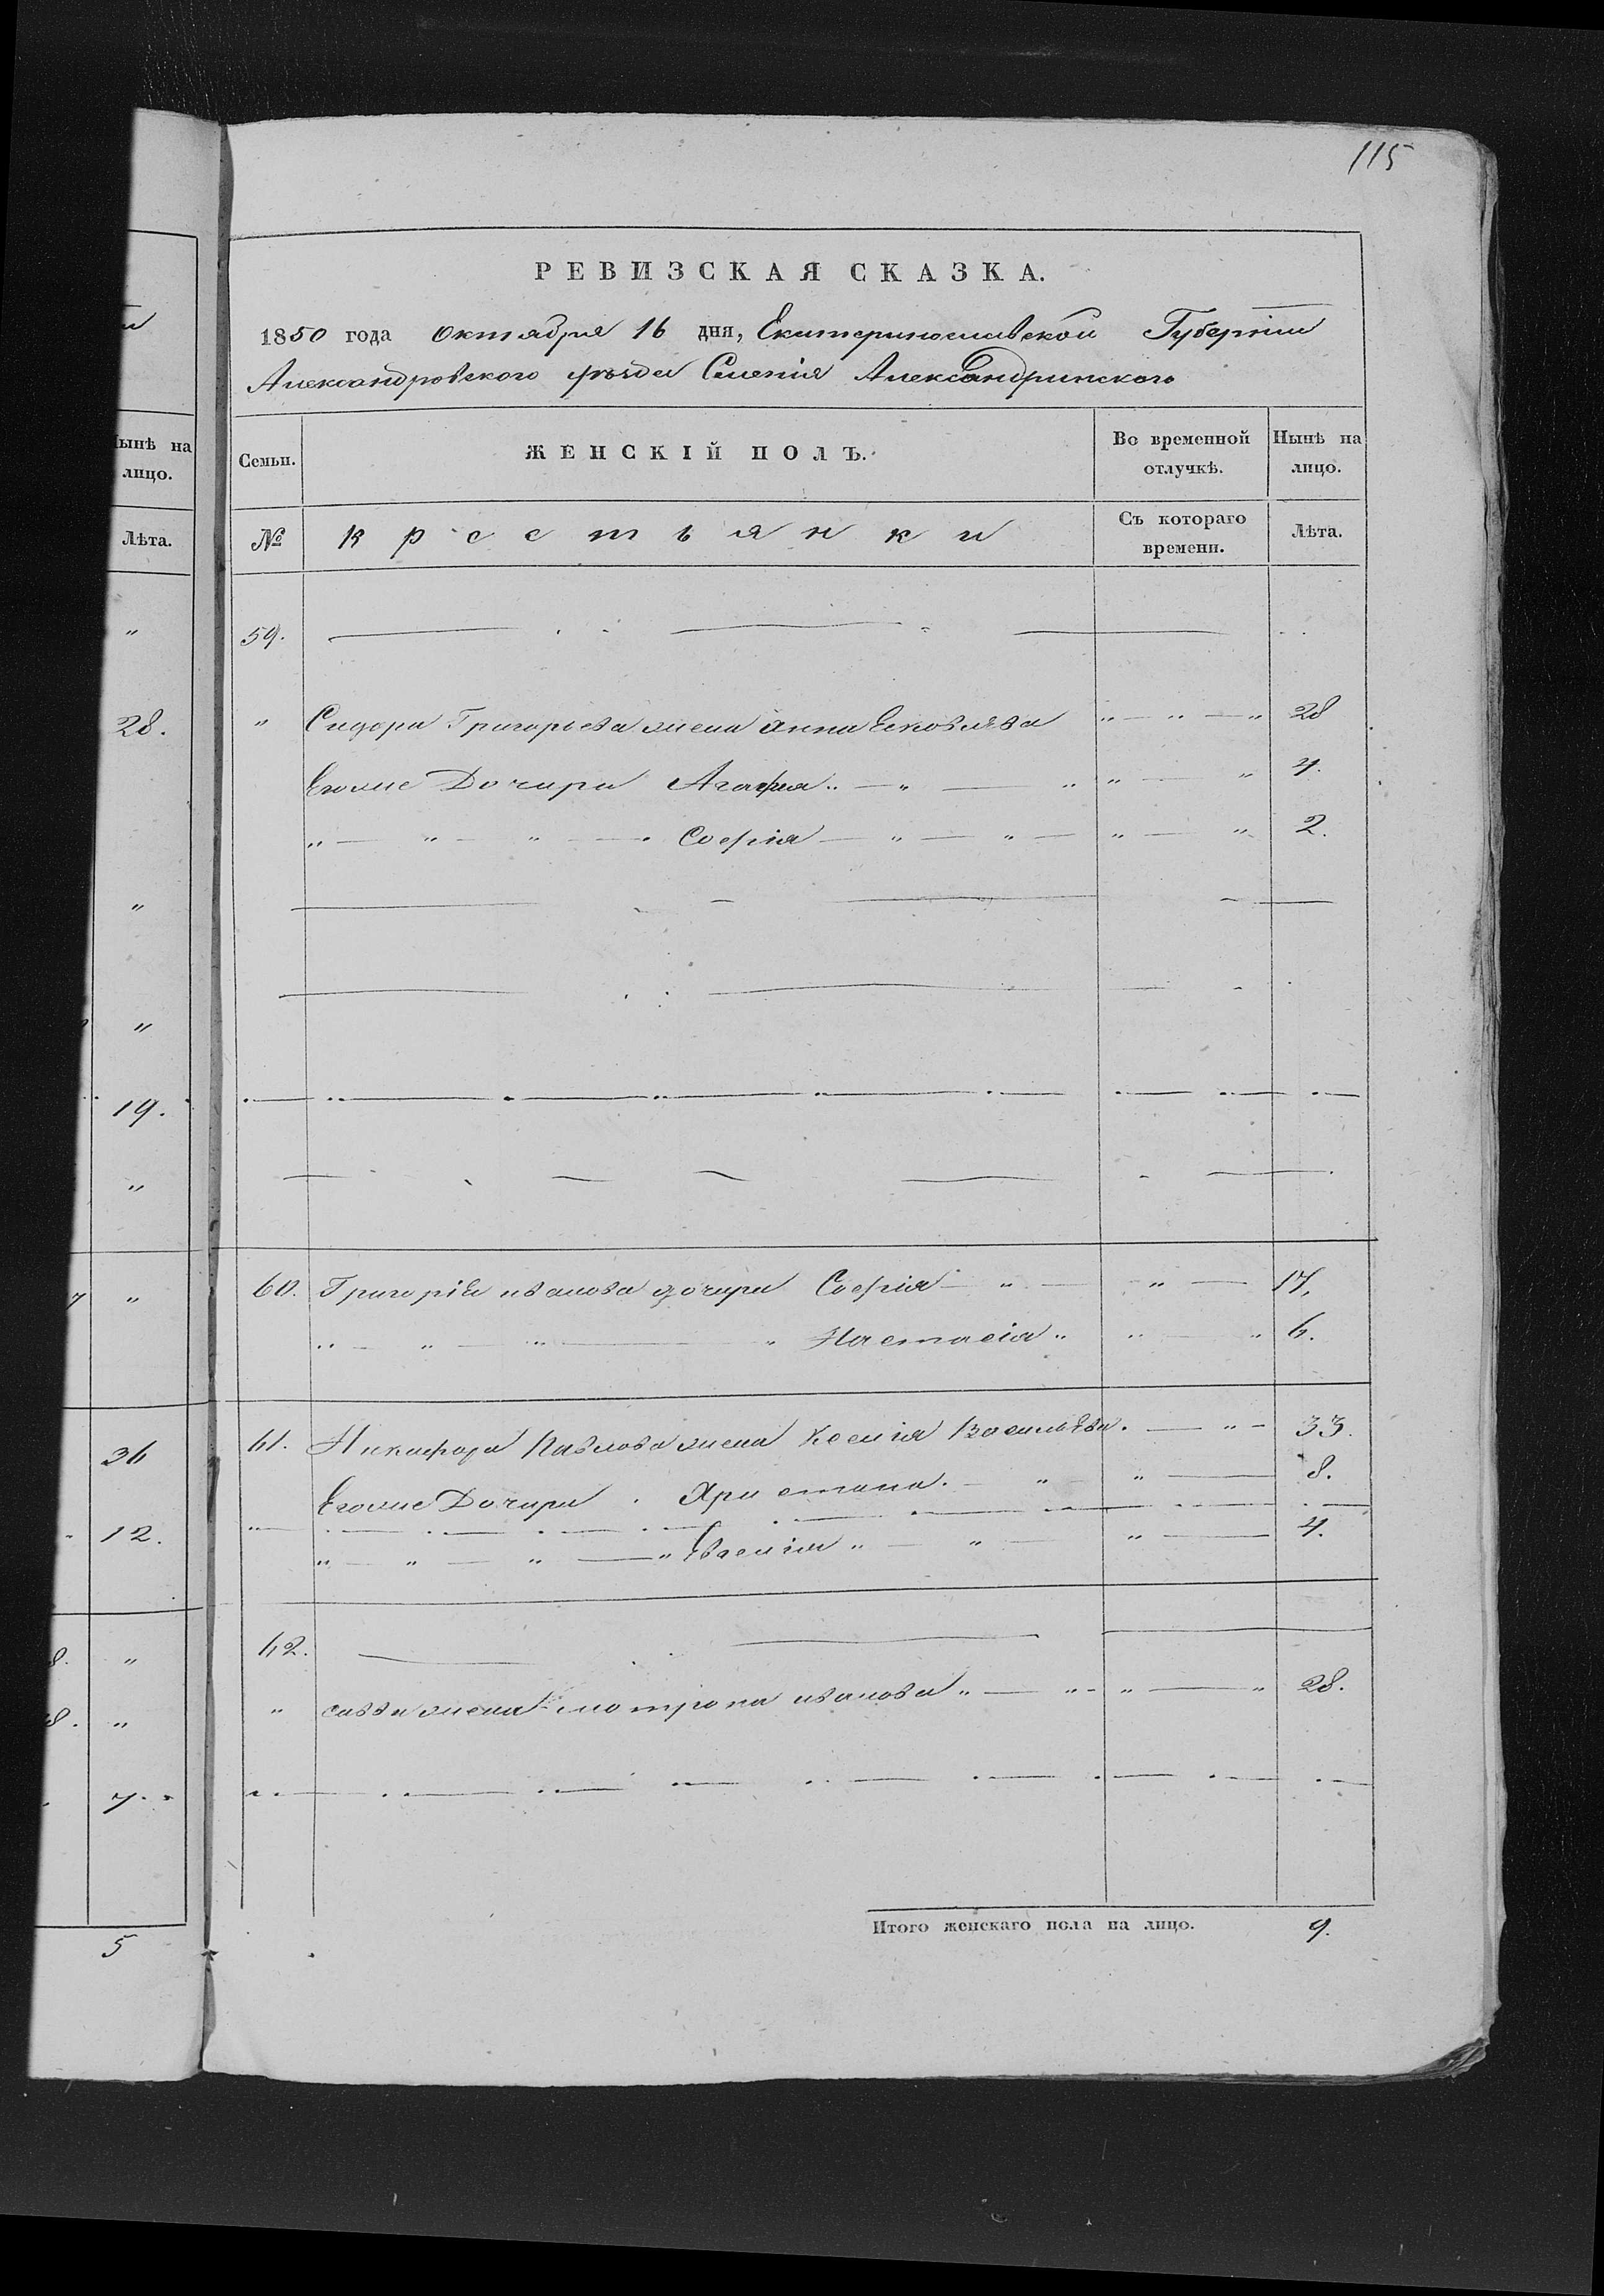 115
РЕВИЗСКАЯ СКАЗКА.
1850 года Октября 16 дня, Екатеринославской Губерніи
Александровского уѣзда Селенія Александринского
Семьи. ЖЕНСКІЙ ПОЛЪ. Во временной отлучкѣ. Нынѣ на лицо.
№ Крестьянки Съ котораго времени. Лѣта.
59.
" Сидора Григорьева жена Анна Яковлева " — " — " 28
Егоже Дочери Агафия " — " — " " — " 4.
" — " — " — Софія — " — " — " — " 2.
60. Григорія иванова дочери Софія — " — " — 17.
" — " — " — " Настасія " " — " 6.
61. Никифора Павлова жена Ксенія Васильева. — " — 33.
Егоже Дочери Христина. — " — " — 8.
" — " — " — " Евгенія " — " — " — 4.
62.
" савви жена мотрона иванова " — " — " — " 28.
Итого женскаго пола на лицо. 9.
ынѣ на
лицо.
Лѣта.
"
28.
"
"
19.
"
"
36
12.
8. "
8. "
7.
5